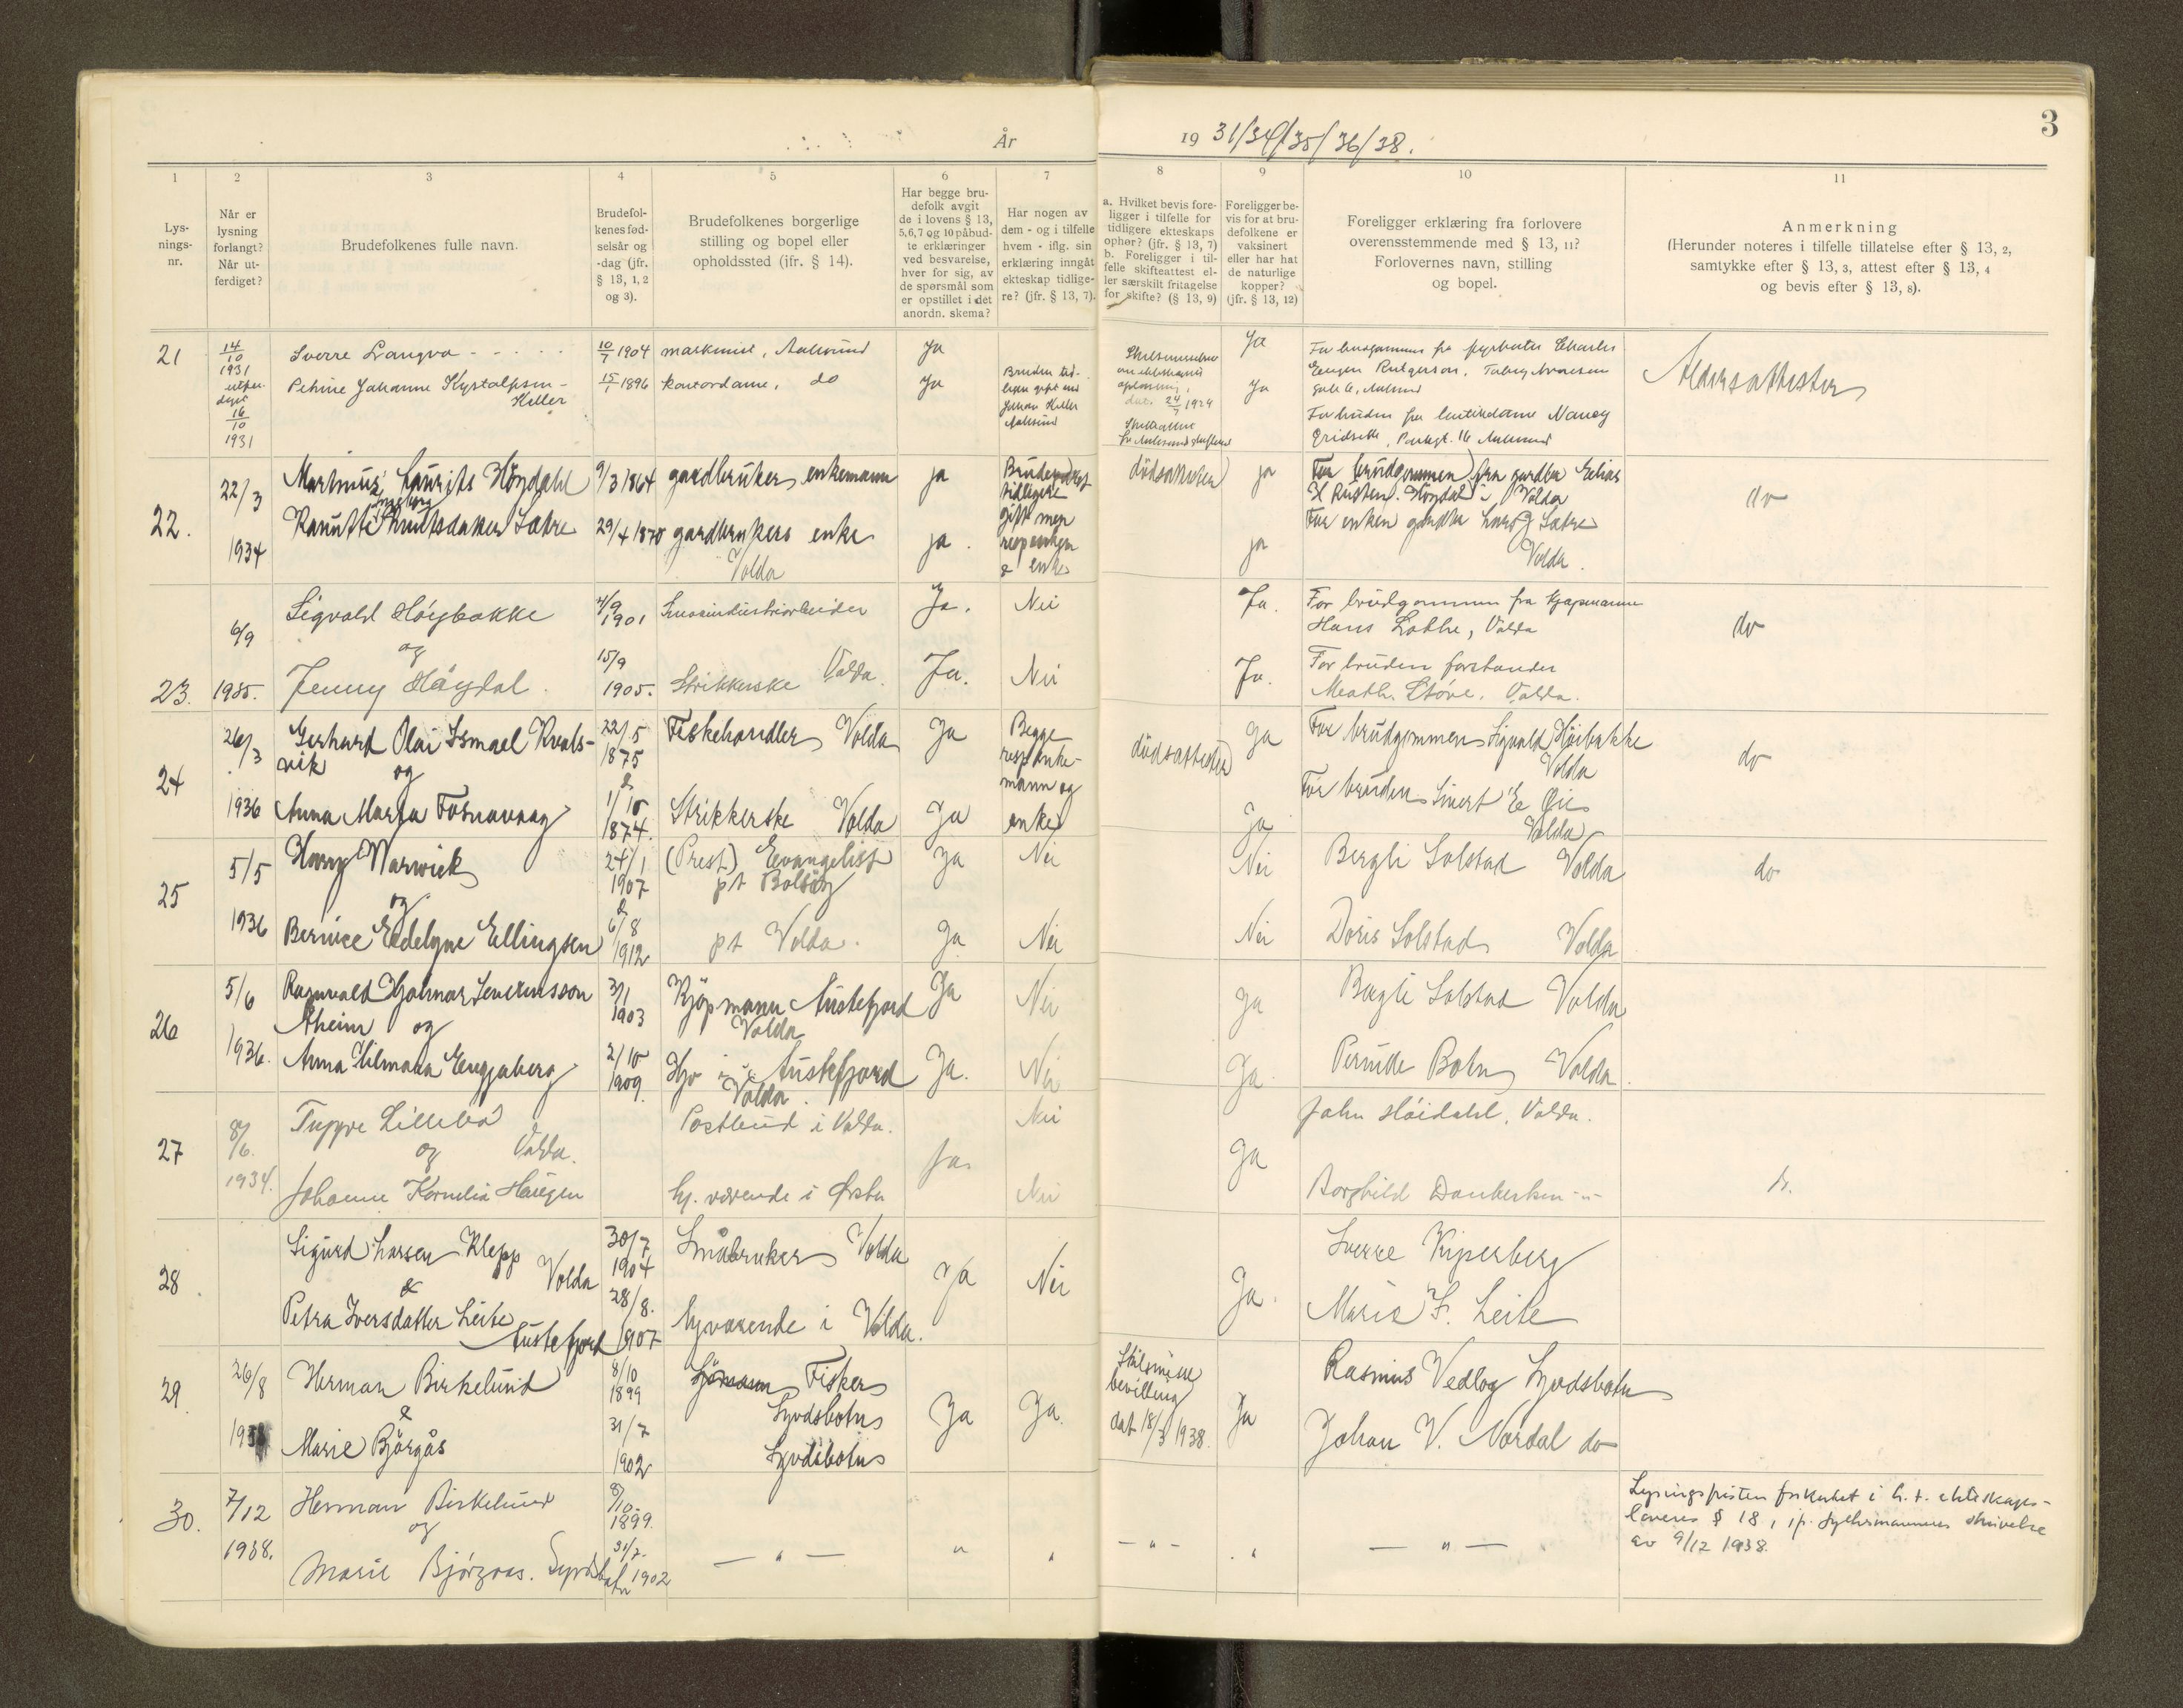 År
19 31/34/35/36/38.
3
1
2
3
4
5
6
7
8
9
10
11
Lys-
nings-
nr.
Når er
lysning
forlangt?
Når ut-
ferdiget?
Brudefolkenes fulle navn.
Brudefol-
kenes fød-
selsår og
-dag (jfr.
§ 13, 1, 2
og 3).
Brudefolkenes borgerlige
stilling og bopel eller
opholdssted (jfr. § 14).
Har begge bru-
defolk avgit
de i lovens § 13,
5, 6, 7 og 10 påbud-
te erklæringer
ved besvarelse,
hver for sig, av
de spørsmål som
er opstillet i det
anordn. skema?
Har nogen av
dem - og i tilfelle
hvem - iflg. sin
erklæring inngåt
ekteskap tidlige-
re? (jfr. § 13, 7).
a. Hvilket bevis fore-
ligger i tilfelle for
tidligere ekteskaps
ophør? (jfr. § 13, 7)
b. Foreligger i til-
felle skifteattest el-
ler særskilt fritagelse
for skifte? (§ 13, 9)
Foreligger be-
vis for at bru-
defolkene er
vaksinert
eller har hat
de naturlige
kopper?
(jfr. § 13, 12)
Foreligger erklæring fra forlovere
overensstemmende med § 13, 11?
Forlovernes navn, stilling
og bopel.
Anmerkning
(Herunder noteres i tilfelle tillatelse efter § 13, 2,
samtykke efter § 13, 3, attest efter § 13, 4
og bevis efter § 13, 8).
21
14/10
1931
16/10
1931
Sverre Langva
Petrine Johanne
Keller
10/7 1904
15/1 1896
maskinist, Aalesund
kontordame, do
Ja
Ja
Bruden tid-
ligere gift med
Johan Keller
Aalesund
24/7 1929
Ja
Ja
Aldersattester
22.
22/3
1934
Martinus Laurits Höydahl
Ingeborg
Knutsdatter Sætre
9/3 1864
29/4 1870
gardbruker, enkemann
gardbrukers enke
Volda
ja
ja.
tidligere
gift men
resp enkem
& enke
dödsattester
ja
ja
For brudgommen fra gardbr Elias
Volda
For enken gardbr Lars J Sætre
Volda.
do
23.
6/9
1935.
Sigvald Höybakke
og
Jenny Höydal.
4/9
1901
15/9
1905.
Strikkerske Volda.
Ja.
Ja.
Nei
Nei
Ja.
Ja.
For brudgommen fra kjøpmann
Hans Lothe, Volda
For bruden forstander
Math. Støve. Volda.
do
24
26/3
1936
Gerhard Olai Ismael Kvals-
vik
og
Anna Marta Fosnavaag
22/5
1875
&
1/10
1874.
Fiskehandler Volda
Strikkerske Volda
Ja
Ja
Begge
resp enke-
mann og
enke
dödsattester
Ja
Ja
For brudgommen Sigvald Höibakke
Volda
For bruden Sivert E Öie
Volda
do
25
5/5
1936
Harry Warwick
og
Bernice Edelyne Ellingsen
24/1
1907
&
6/8
1912
(Prest) Evangelist
pt Bolsöy
pt Volda.
Ja
Ja
Nei
Nei
Nei
Nei
Bergli Solstad Volda
Doris Solstad Volda
do
26
5/6
1936.
Ragnvald Hjalmar Severinsson
Aheim og
Anna Hilmara Engjaberg
3/1
1903
2/10
1909
Kjöpmann Austefjord
Volda
Austefjord
Volda.
Ja
Ja.
Nei
Nei
Ja
Ja
Bergli Solstad Volda
Pernille Botn Volda.
27
8/6.
1934.
Lillebö
og Volda.
Johanne Kornelia Haugen
Postbud i Volda.
hj. værende i Ørsta
Ja
Nei
Nei
Ja
John Höidahl, Volda.
Borghild
28
Sigurd Larsen Klepp
Volda
&
Petra Iversdatter Leite
Austefjord
30/7
1904
28/8.
1907
Småbruker Volda
hjværende i Volda.
Ja
Nei
Ja.
Sverre Kiperberg
Maria F. Leite
29
26/8
Herman Birkelund
&
Marie Björgås
8/10
1899
31/7
1902
Fisker
Syvdsbotn
Syvdsbotn
Ja
Ja.
Skilsmisse
bevilling
dat 18/3 1938.
Ja
Rasmus Vedlog Syvdsbotn
Johan V. Nordal do
30.
7/12
1938.
Herman Birkelund
og
Marie Bjørgaas. Syvdsbotn
8/10.
1899.
31/7.
1902
— " —
"
"
— " —
"
— " —
Lysningsfristen forkortet i h. t. ekteskaps-
lovens § 18, jfr. fylkesmannens skrivelse
av 9/12 1938.